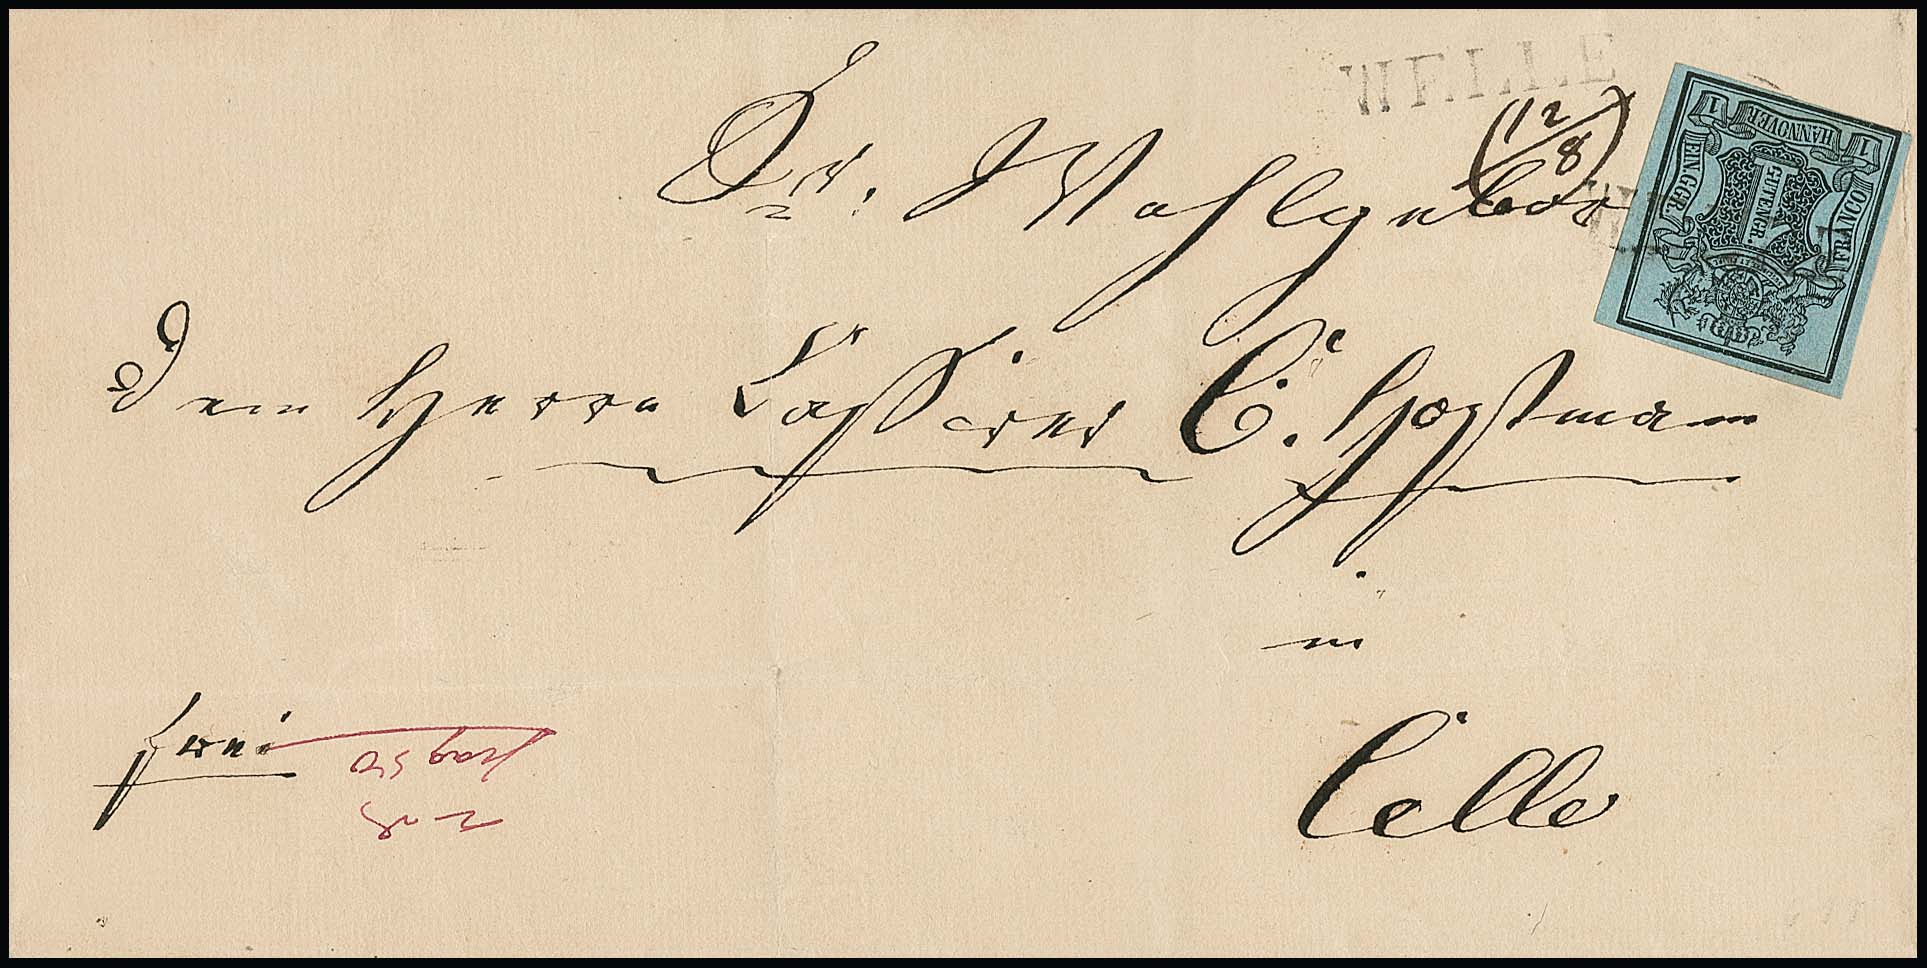 WELLE
(12/8)
Sr. Wohlgeboren
dem Herrn Cassirer C. Hostmann
in
Celle
frei
1
HANNOVER
1
EIN GGR.
FRANCO
1
GUTENGR.